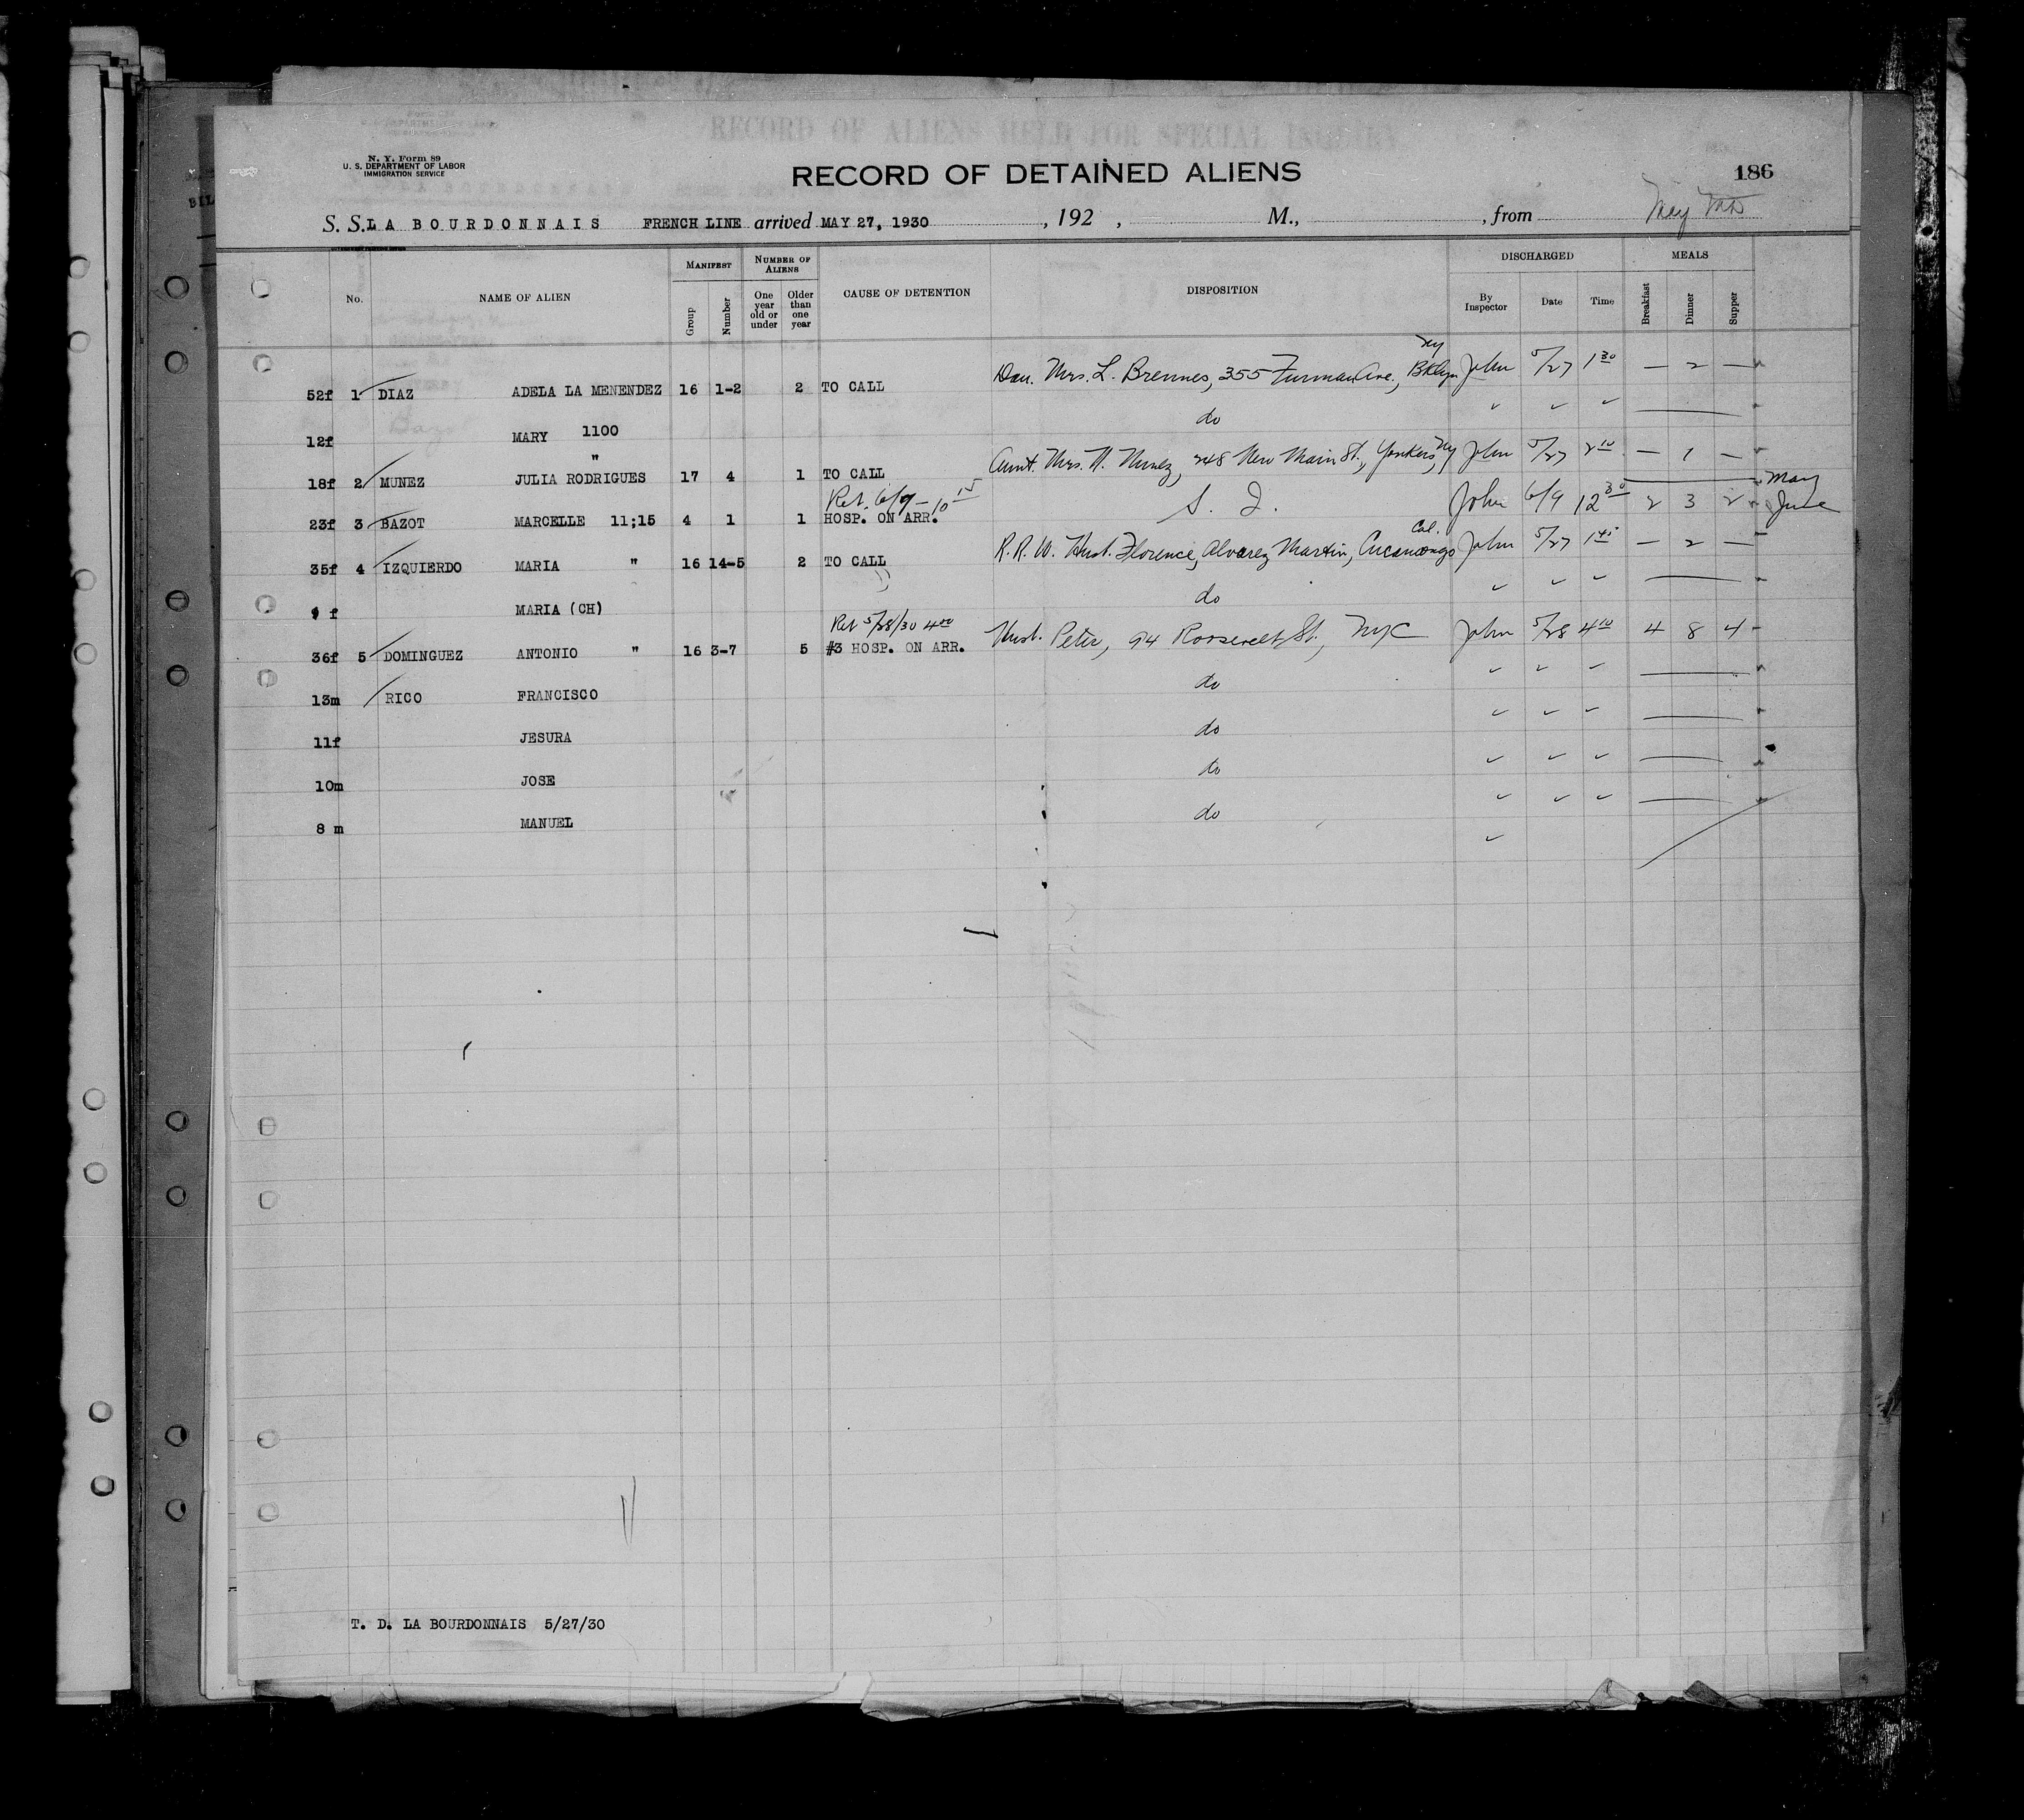 N. Y. Form 89
U. S. DEPARTMENT OF LABOR
IMMIGRATION SERVICE
RECORD OF ALIENS HELD FOR SPECIAL INQUIRY
RECORD OF DETAINED ALIENS
186
S. S. LA BOURDONNAIS FRENCH LINE arrived MAY 27, 1930 , 192 , M., , from
No. NAME OF ALIEN MANIFEST Group Number NUMBER OF ALIENS One year old or under Older than one year CAUSE OF DETENTION DISPOSITION DISCHARGED By Inspector Date Time MEALS Breakfast Dinner Supper
52f 1 DIAZ ADELA LA MENENDEZ 16 1-2 2 TO CALL Dau. Mrs. L. Brennes, 355 Furman Ave., Bklyn NY John 5/27 1 30 — 2 —
12f MARY 1100 do ✓ ✓ ✓
18f 2 MUNEZ JULIA RODRIGUES " 17 4 1 TO CALL Aunt. Mrs. N. Nunez, 248 New Main St., Yonkers, NY John 5/27 2 10 — 1 —
May
Ret. 6/9 - 10 15
23f 3 BAZOT MARCELLE 11;15 4 1 1 HOSP. ON ARR. S. I. John 6/9 12 30 2 3 2 June
35f 4 IZQUIERDO MARIA " 16 14-5 2 TO CALL R. R. W. Husb. Florence, Alvarez Martin, Cucamongo Cal. John 5/27 1 45 — 2 —
f MARIA (CH) do ✓ ✓ ✓
Ret 5/28/30 4 00
36f 5 DOMINGUEZ ANTONIO " 16 3-7 5 #3 HOSP. ON ARR. Husb. Peter, 94 Roosevelt St., NYC John 5/28 4 10 4 8 4
13m RICO FRANCISCO do ✓ ✓ ✓
11f JESURA do ✓ ✓ ✓
10m JOSE do ✓ ✓ ✓
8 m MANUEL do ✓ ✓ ✓
T. D. LA BOURDONNAIS 5/27/30